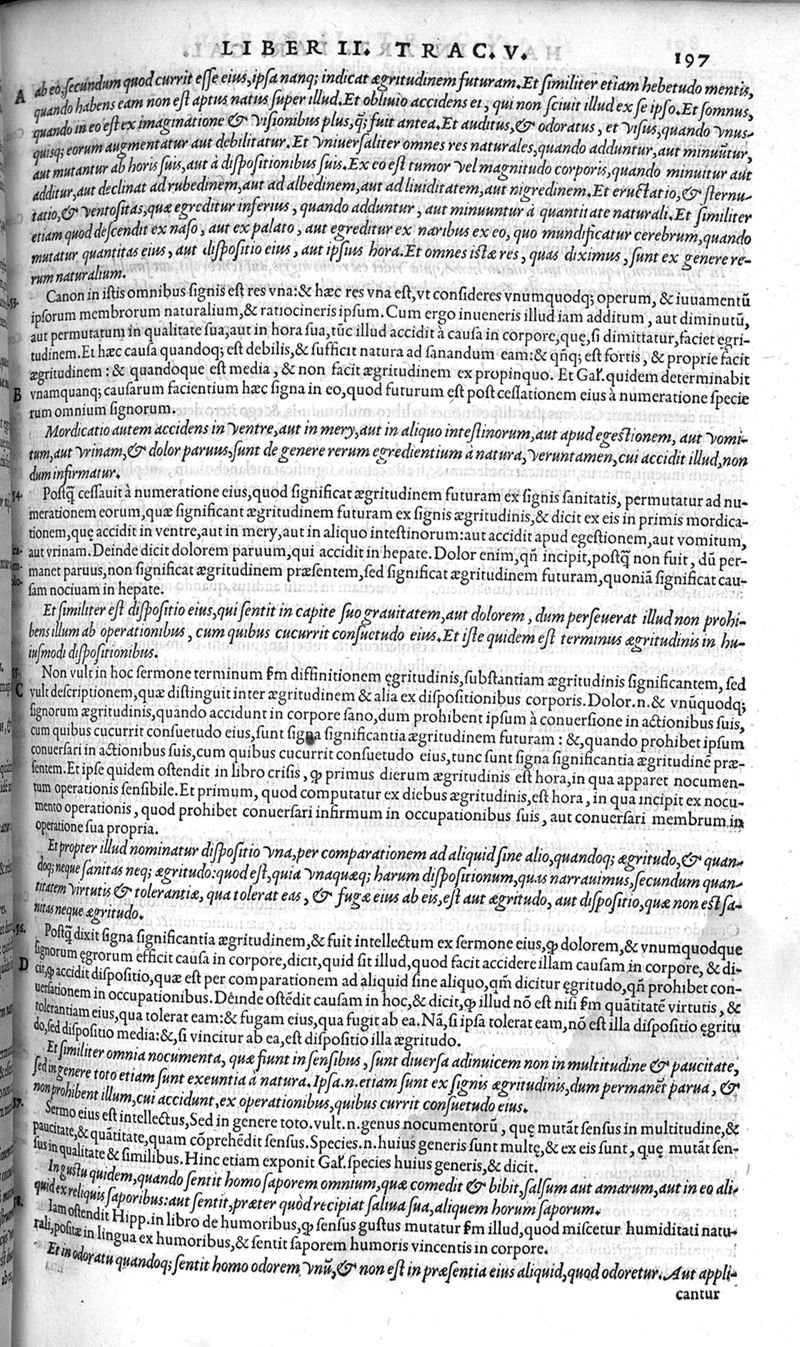 LIBER II. TRAC. V.
197
A
ab eo, secundum quod currit esse eius, ipsa nanq; indicat ægritudinem futuram. Et similiter etiam hebetudo mentis,
quando habens eam non est aptus natus super illud. Et obliuio accidens ei, qui non sciuit illud ex se ipso. Et somnus,
quando in eo est ex imaginatione & visionibus plus, q̃; fuit antea. Et auditus, & odoratus, et visus, quando vnus-
quisq; eorum augmentatur aut debilitatur. Et vniuersaliter omnes res naturales, quando adduntur, aut minuũtur,
aut mutantur ab horis suis, aut à dispositionibus suis. Ex eo est tumor vel magnitudo corporis, quando minuitur aut
additur, aut declinat ad rubedinem, aut ad albedinem, aut ad liuiditatem, aut nigredinem. Et eructatio, & sternu-
tatio, & ventositas, quæ egreditur inferius, quando adduntur, aut minuuntur à quantitate naturali. Et similiter
etiam quod descendit ex naso, aut ex palato, aut egreditur ex naribus ex eo, quo mundificatur cerebrum, quando
mutatur quantitas eius, aut dispositio eius, aut ipsius hora. Et omnes istæ res, quas diximus, sunt ex genere re-
rum naturalium.
Canon in istis omnibus signis est res vna: & hæc res vna est, vt consideres vnumquodq; operum, & iuuamentũ
ipsorum membrorum naturalium, & ratiocineris ipsum. Cum ergo inueneris illud iam additum, aut diminutũ,
aut permutatum in qualitate sua, aut in hora sua, tũc illud accidit à causa in corpore, quę, si dimittatur, faciet egri-
tudinem. Et hæc causa quandoq; est debilis, & sufficit natura ad sanandum eam: & qñq; est fortis, & proprie facit
ægritudinem: & quandoque est media, & non facit ægritudinem ex propinquo. Et Gal'. quidem determinabit
B
vnamquanq; causarum facientium hæc signa in eo, quod futurum est post cessationem eius à numeratione specie
rum omnium signorum.
Mordicatio autem accidens in ventre, aut in mery, aut in aliquo intestinorum, aut apud egestionem, aut vomi-
tum, aut vrinam, & dolor paruus, sunt de genere rerum egredientium à natura, veruntamen, cui accidit illud, non
dum infirmatur.
54.
Postq̃ cessauit à numeratione eius, quod significat ægritudinem futuram ex signis sanitatis, permutatur ad nu-
merationem eorum, quæ significant ægritudinem futuram ex signis ægritudinis, & dicit ex eis in primis mordica-
tionem, quę accidit in ventre, aut in mery, aut in aliquo intestinorum: aut accidit apud egestionem, aut vomitum,
aut vrinam. Deinde dicit dolorem paruum, qui accidit in hepate. Dolor enim, qñ incipit, postq̃ non fuit, dũ per-
manet paruus, non significat ægritudinem præsentem, sed significat ægritudinem futuram, quoniã significat cau-
sam nociuam in hepate.
Et similiter est dispositio eius, qui sentit in capite suo grauitatem, aut dolorem, dum perseuerat illud non prohi-
bens illum ab operationibus, cum quibus cucurrit consuetudo eius. Et iste quidem est terminus ægritudinis in hu-
iusmodi dispositionibus.
Non vult in hoc sermone terminum fm diffinitionem ęgritudinis, substantiam ægritudinis significantem, sed
C
vult descriptionem, quæ distinguit inter ægritudinem & alia ex dispositionibus corporis. Dolor. n. & vnũquodq;
signorum ægritudinis, quando accidunt in corpore sano, dum prohibent ipsum à conuersione in actionibus suis,
cum quibus cucurrit consuetudo eius, sunt signa significantia ægritudinem futuram: &, quando prohibet ipsum
conuersari in actionibus suis, cum quibus cucurrit consuetudo eius, tunc sunt signa significantia ægritudinẽ præ-
sentem. Et ipse quidem ostendit in libro crisis, ꝙ primus dierum ægritudinis est hora, in qua apparet nocumen-
tum operationis sensibile. Et primum, quod computatur ex diebus ægritudinis, est hora, in qua incipit ex nocu-
mento operationis, quod prohibet conuersari infirmum in occupationibus suis, aut conuersari membrum in
operatione sua propria.
Et propter illud nominatur dispositio vna, per comparationem ad aliquid sine alio, quandoq; ægritudo, & quan-
doq; neque sanitas neq; ægritudo: quod est, quia vnaquæq; harum dispositionum, quas narrauimus, secundum quan-
titatem virtutis & tolerantiæ, qua tolerat eas, & fugæ eius ab eis, est aut ægritudo, aut dispositio, quæ non est sa-
nitas neque ægritudo.
56.
Postq̃ dixit signa significantia ægritudinem, & fuit intellectum ex sermone eius, ꝙ dolorem, & vnumquodque
D
signorum ęgrorum efficit causa in corpore, dicit, quid sit illud, quod facit accidere illam causam in corpore, & di-
cit, ꝙ accidit dispositio, quæ est per comparationem ad aliquid sine aliquo, qm̃ dicitur ęgritudo, qñ prohibet con-
uersationem in occupationibus. Deinde ostẽdit causam in hoc, & dicit, ꝙ illud nõ est nisi fm quãtitatẽ virtutis, &
tolerantiam eius, qua tolerat eam: & fugam eius, qua fugit ab ea. Nã, si ipsa tolerat eam, nõ est illa dispositio ęgritu
do, sed dispositio media: &, si vincitur ab ea, est dispositio illa ægritudo.
Et similiter omnia nocumenta, quæ fiunt in sensibus, sunt diuersa adinuicem non in multitudine & paucitate,
sed in genere toto etiam sunt exeuntia à natura. Ipsa. n. etiam sunt ex signis ægritudinis, dum permanẽt parua, &
non prohibent illum, cui accidunt, ex operationibus, quibus currit consuetudo eius.
57.
Sermo eius est intellectus, Sed in genere toto. vult. n. genus nocumentorũ, quę mutãt sensus in multitudine, &
paucitate, & quãtitate, quam cõprehẽdit sensus. Species. n. huius generis sunt multę, & ex eis sunt, quę mutãt sen-
sus in qualitate & similibus. Hinc etiam exponit Gal'. species huius generis, & dicit.
In gustu quidem, quando sentit homo saporem omnium, quæ comedit & bibit, salsum aut amarum, aut in eo ali-
quid ex reliquis saporibus: aut sentit, præter quòd recipiat saliua sua, aliquem horum saporum.
Iam ostendit Hipp. in libro de humoribus, ꝙ sensus gustus mutatur fm illud, quod miscetur humiditati natu-
rali, positæ in lingua ex humoribus, & sentit saporem humoris vincentis in corpore.
Et in odoratu quandoq; sentit homo odorem vnũ, & non est in præsentia eius aliquid, quod odoretur. Aut appli-
cantur